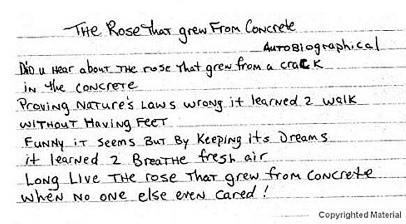 The Rose That Grew From Concrete
Autobiographical
Did u hear about the rose that grew from a crack
in the concrete
Proving nature's laws wrong it learned 2 walk
without having feet
Funny it seems but by keeping its dreams
it learned 2 breathe fresh air
Long live the rose that grew from concrete
when no one else even cared!
Copyrighted Material